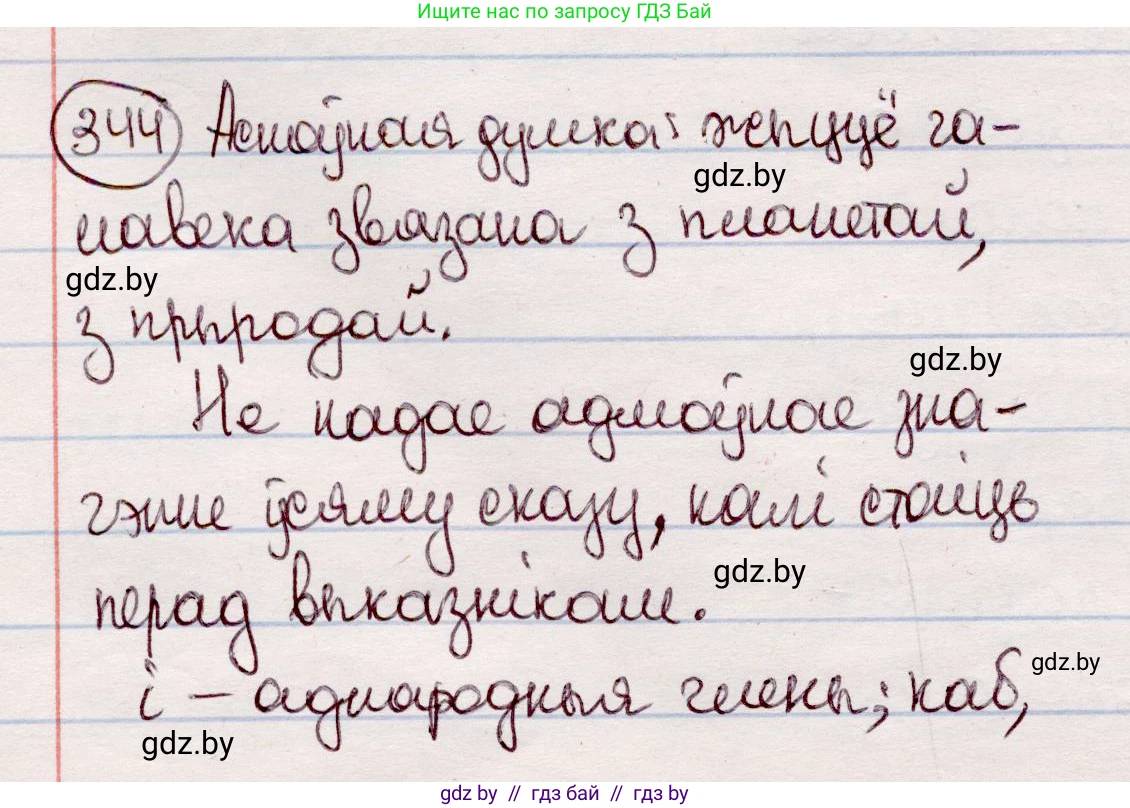 Ищите нас по запросу ГДЗ Бай
344 Асноўная думка: жыццё ча-
gdz.by
лавека звязана з планетай,
gdz.by
з прыродай.
gdz.by
Не надае адмоўнае зна-
чэнне ўсяму сказу, калі стаіць
gdz.by
перад выказнікам.
gdz.by
і – аднародныя члены; каб,
gdz.by
gdz by // гдз бай // гдз by